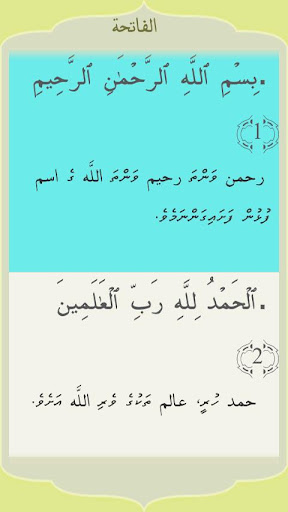 الفاتحة
.بِسْمِ ٱللَّهِ ٱلرَّحْمَٰنِ ٱلرَّحِيمِ
1
رحمن ވަންތަ رحيم ވަންތަ اللَّه ގެ اسم
ފުޅުން ފަށައިގަންނަމެވެ.
.ٱلْحَمْدُ لِلَّهِ رَبِّ ٱلْعَٰلَمِينَ
2
حمد ހުރީ، عالم ތަކުގެ ވެރި اللَّه އަށެވެ.